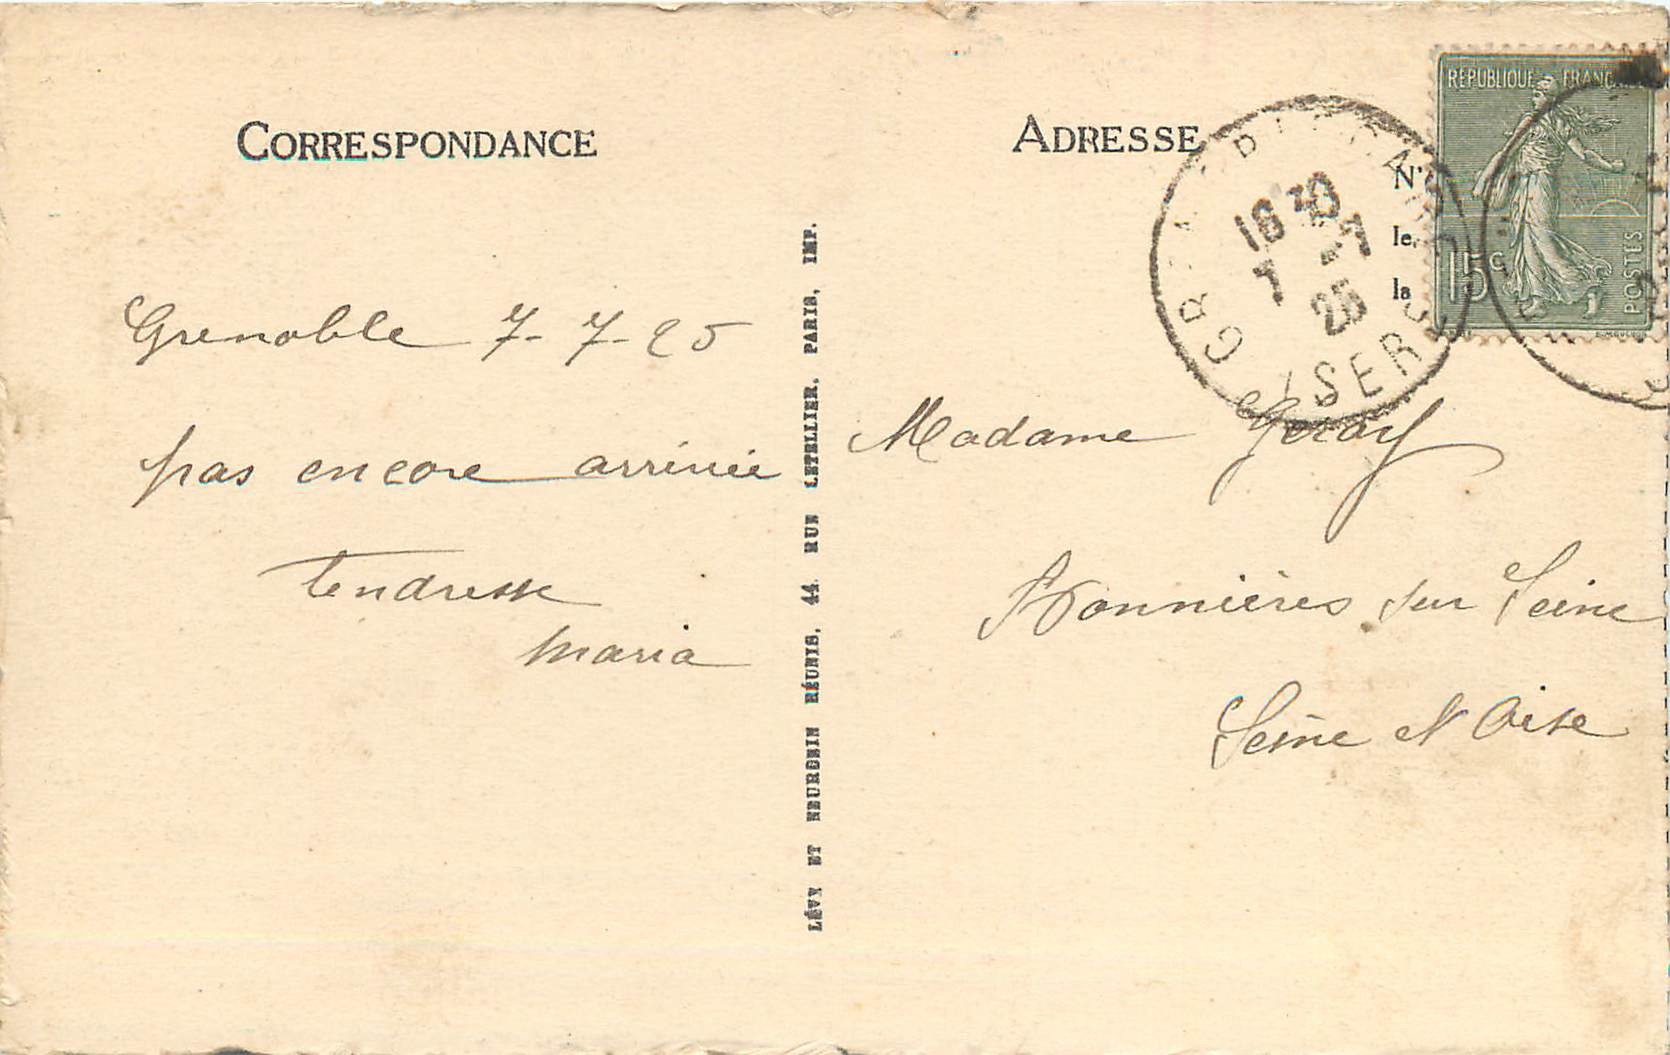 CORRESPONDANCE
Grenoble 7-7-25
pas encore arrivée
Tendresse
Maria
LÉVY ET NEURDEIN RÉUNIS, 44, RUE LETELLIER, PARIS, IMP.
ADRESSE
N'
le
la
RÉPUBLIQUE FRANÇAISE
15c
POSTES
18 30
7 -7
25
ISERE
Madame
Bonnières sur Seine
Seine et Oise